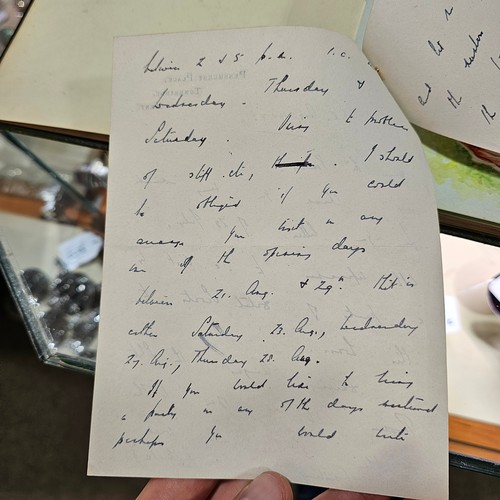 between 2 & 5 p.m. i.e.
Wednesday. Thursday &
Saturday. Owing to problem
of staff etc, . I should
be obliged if you could
arrange your visit on any
one of the opening days
between 21. Aug. & 29th that is
either Saturday 23. Aug., Wednesday
27. Aug., Thursday 28. Aug.
If you would like to bring
a party on any of the days mentioned
perhaps you would write
and let
the